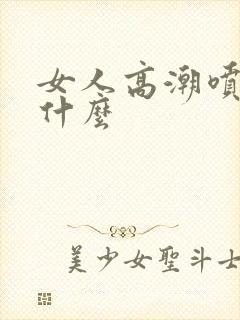 女人高潮噴
什麼
美少女聖斗士